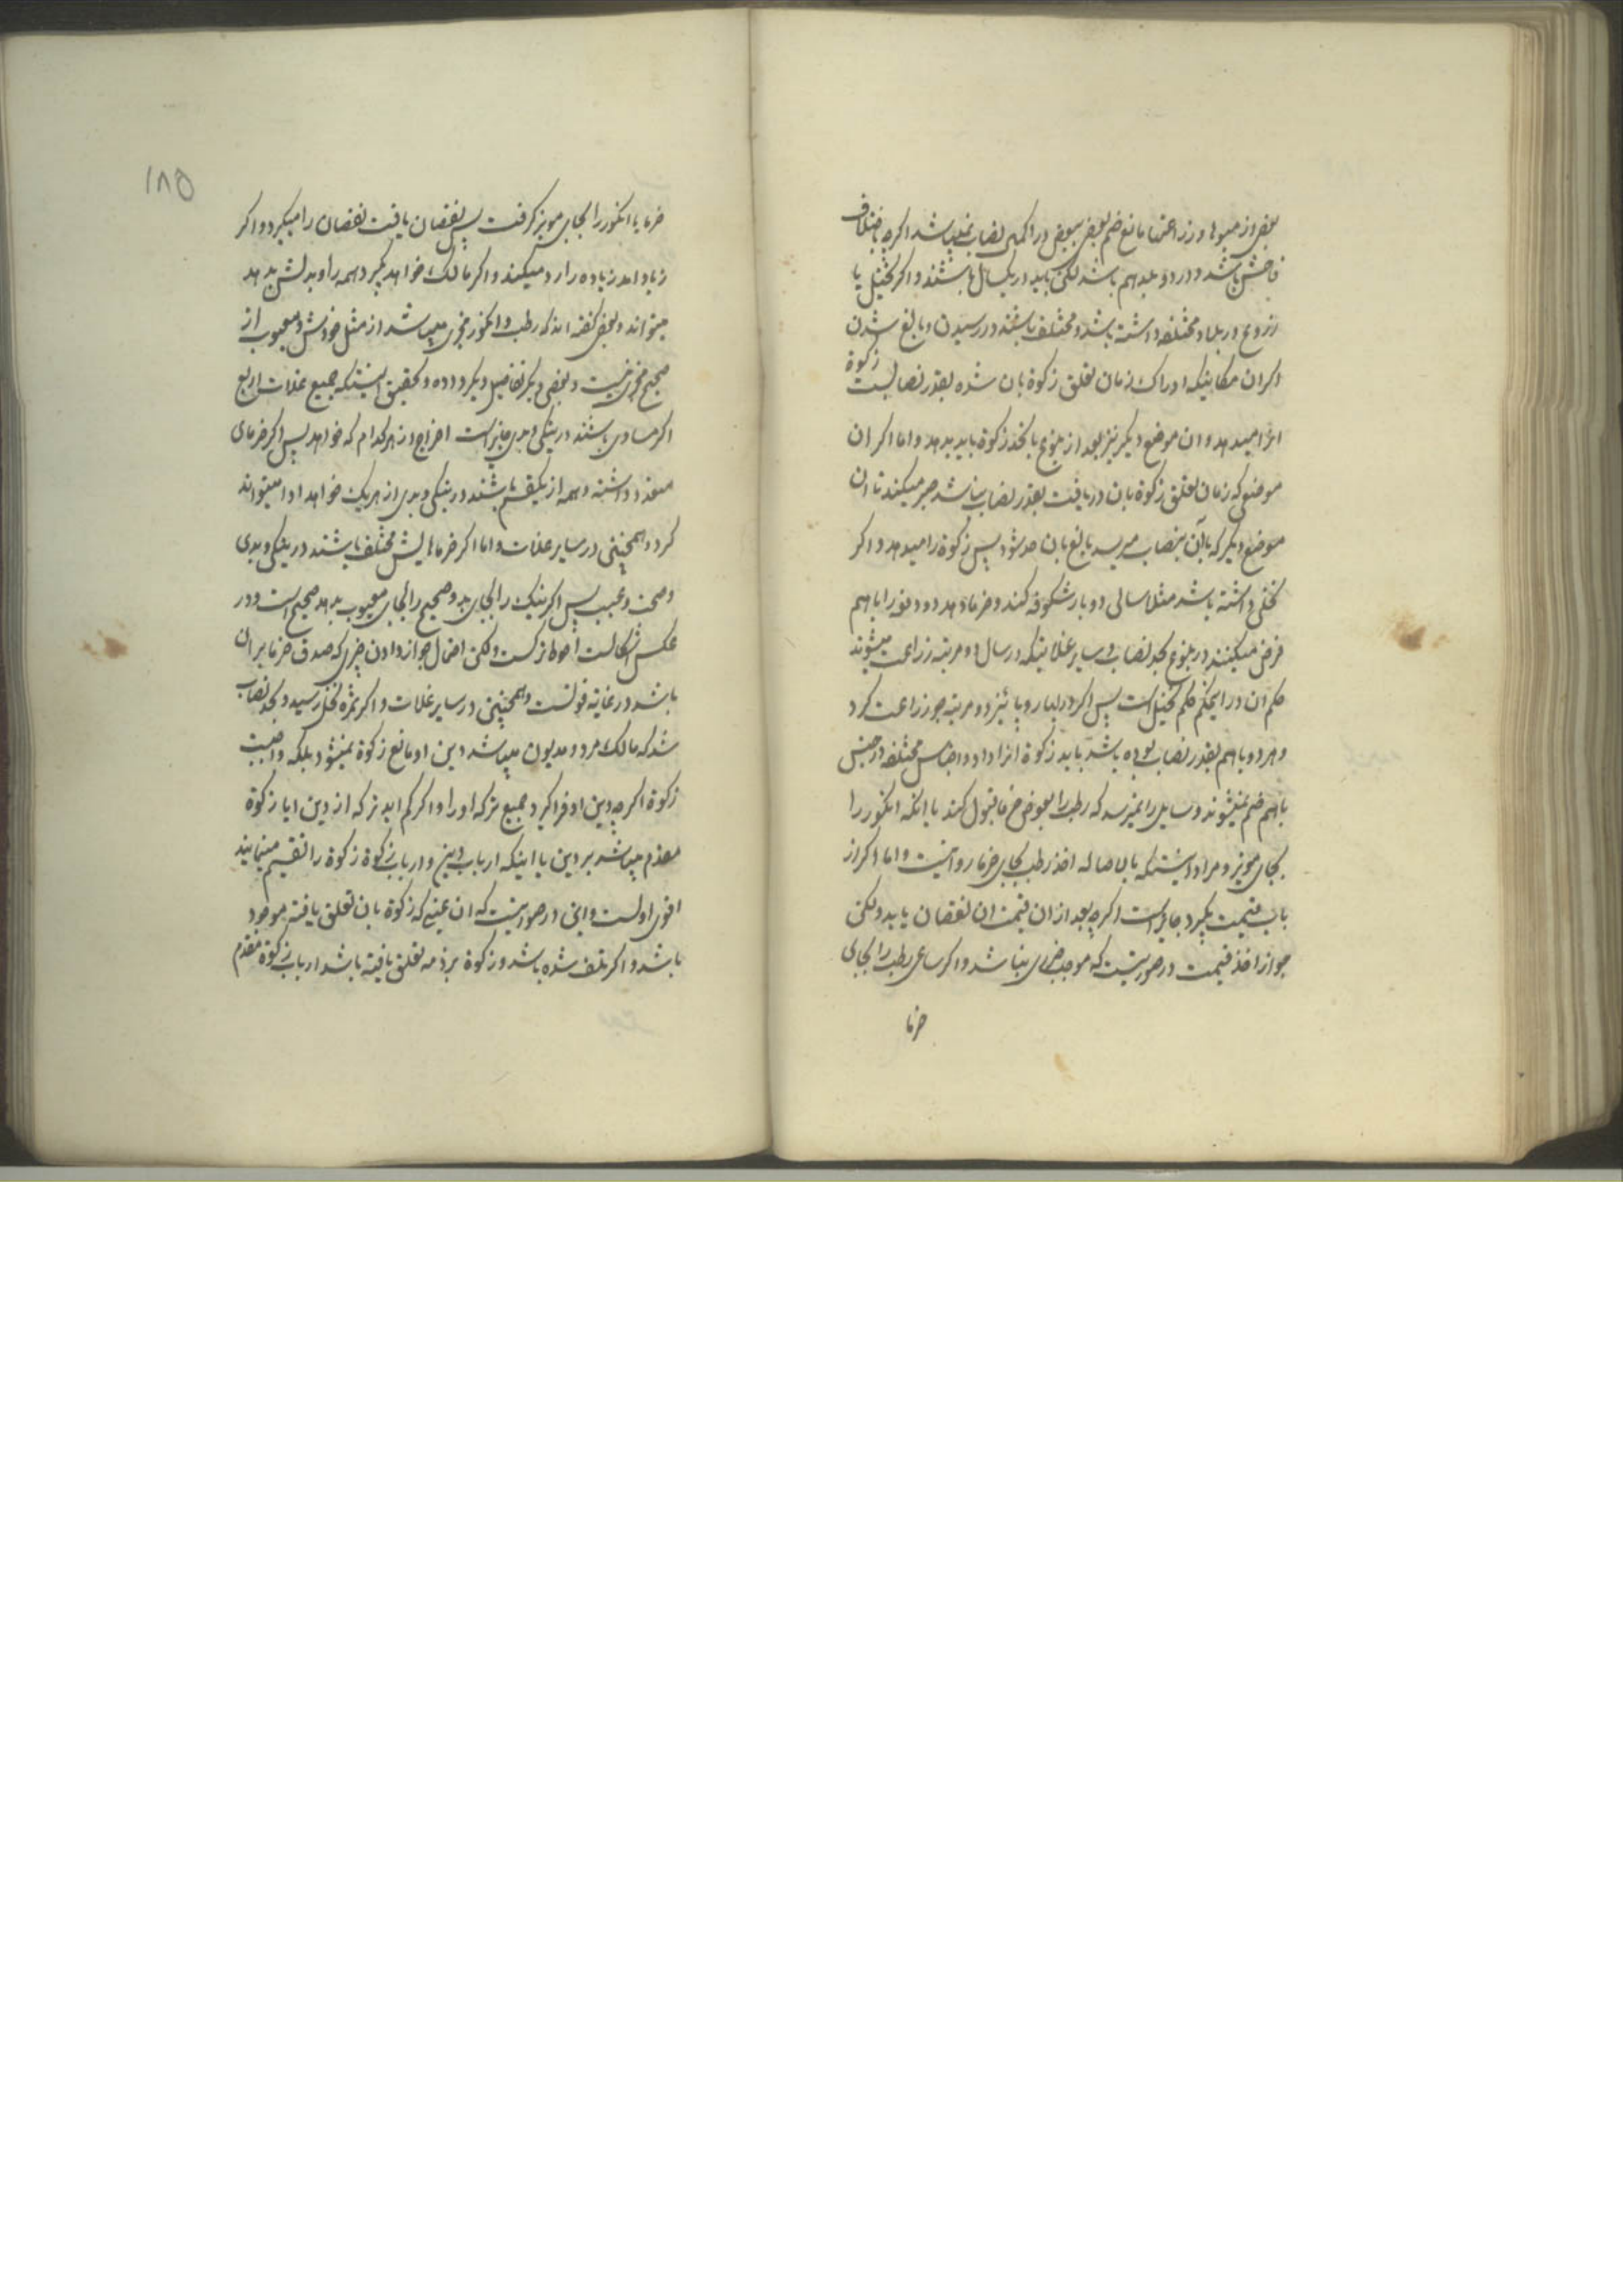 بعضی از میوها و زراعتها مانع ضم بعضی ببعض در اکمال نصاب نمیباشد اکرچه باختلاف
فاحش باشد و در دو بلد هم باشد لکن باید در یکسال باشند و اکر نخیل یا
زروع در بلاد مختلفه داشته باشد و مختلف باشند در رسیدن و بالغ شدن
اکر ان مکانیکه ادراک زمان تعلق زکوة بان شده بقدر نصابست زکوة
انرا میدهد و ان موضع دیکر نیز بعد از بلوغ باخذ زکوة باید بدهد و اما اکر ان
موضعی که زمان تعلق زکوة بان دریافت بقدر نصاب نباشد صبر میکند تا ان
موضع دیکر که با آن بنصاب میرسد بالغ بان حد شود پس زکوة را میدهد و اکر
نخلی داشته باشد مثلا سالی دو بار شکوفه کند و خرما دهد دو دفعه را با هم
فرض میکنند در بلوغ بحد نصاب و سایر غلاتیکه در سال دو مرتبه زراعت میشوند
حکم ان در اینحکم حکم نخیل است پس اکر در بهار و پائیز دو مرتبه جو زراعت کرد
و هر دو با هم بقدر نصاب بوده باشد باید زکوة انرا داد و اجناس مختلفه در جنس
با هم ضم نمیشوند و ساعی را نمیرسد که رطب را بعوض خرما قبول کند یا انکه انکور را
بجای مویز و مراد اینستکه بالاصاله اخذ رطب بجای خرما روا نیست و اما اکر از
باب قیمت بکیرد جایز است اکرچه بعد از ان قیمت ان نقصان یابد ولکن
جواز اخذ قیمت در صورتیست که موجب ضرری نباشد و اکر ساعی رطب را بجای
خرما
۱۸۵
خرما یا انکور را بجای مویز کرفت پس نقصان یافت نقصان را میکیرد و اکر
زیاد امد زیاده را رد میکند و اکر مالک خواهد بکیرد همه را و بدلش بدهد
میتواند و بعضی کفته اند که رطب و انکور مجزی میباشد از مثل خودش و معیوب از
صحیح مجزی نیست و بعضی دیکر تفاصیل دیکر داده و تحقیق اینستکه جمیع غلات اربع
اکر مساوی باشند در نیکی و بدی جایز است اخراج از هر کدام که خواهد پس اکر خرمای
متعدد داشته و همه از یکقسم باشند در نیکی و بدی از هر یک خواهد ادا میتواند
کرد و همچنین در سایر غلات و اما اکر خرماهایش مختلف باشند در نیکی و بدی
و صحت و عیب پس اکر نیک را بجای بد و صحیح را بجای معیوب بدهد صحیح است و در
عکس اشکالست احوط ترکست ولکن احتمال جواز دادن چیزی که صدق خرما بر ان
باشد در غایة قوتست و همچنین در سایر غلات و اکر ثمره نخل رسید و بحد نصاب
شد که مالک مرد و مدیون میباشد دین او مانع زکوة نمیشود بلکه واجبست
زکوة اکرچه دین او فراکیرد جمیع ترکه او را و اکر کم اید ترکه از دین ایا زکوة
مقدم میباشد بر دین یا اینکه ارباب دین و ارباب زکوة زکوة را تقسیم مینمایند
اقوی اولست و این در صورتیست که ان عینی که زکوة بان تعلق یافته موجود
باشد و اکر تلف شده باشد و زکوة بر ذمه تعلق یافته باشد ارباب زکوة مقدم